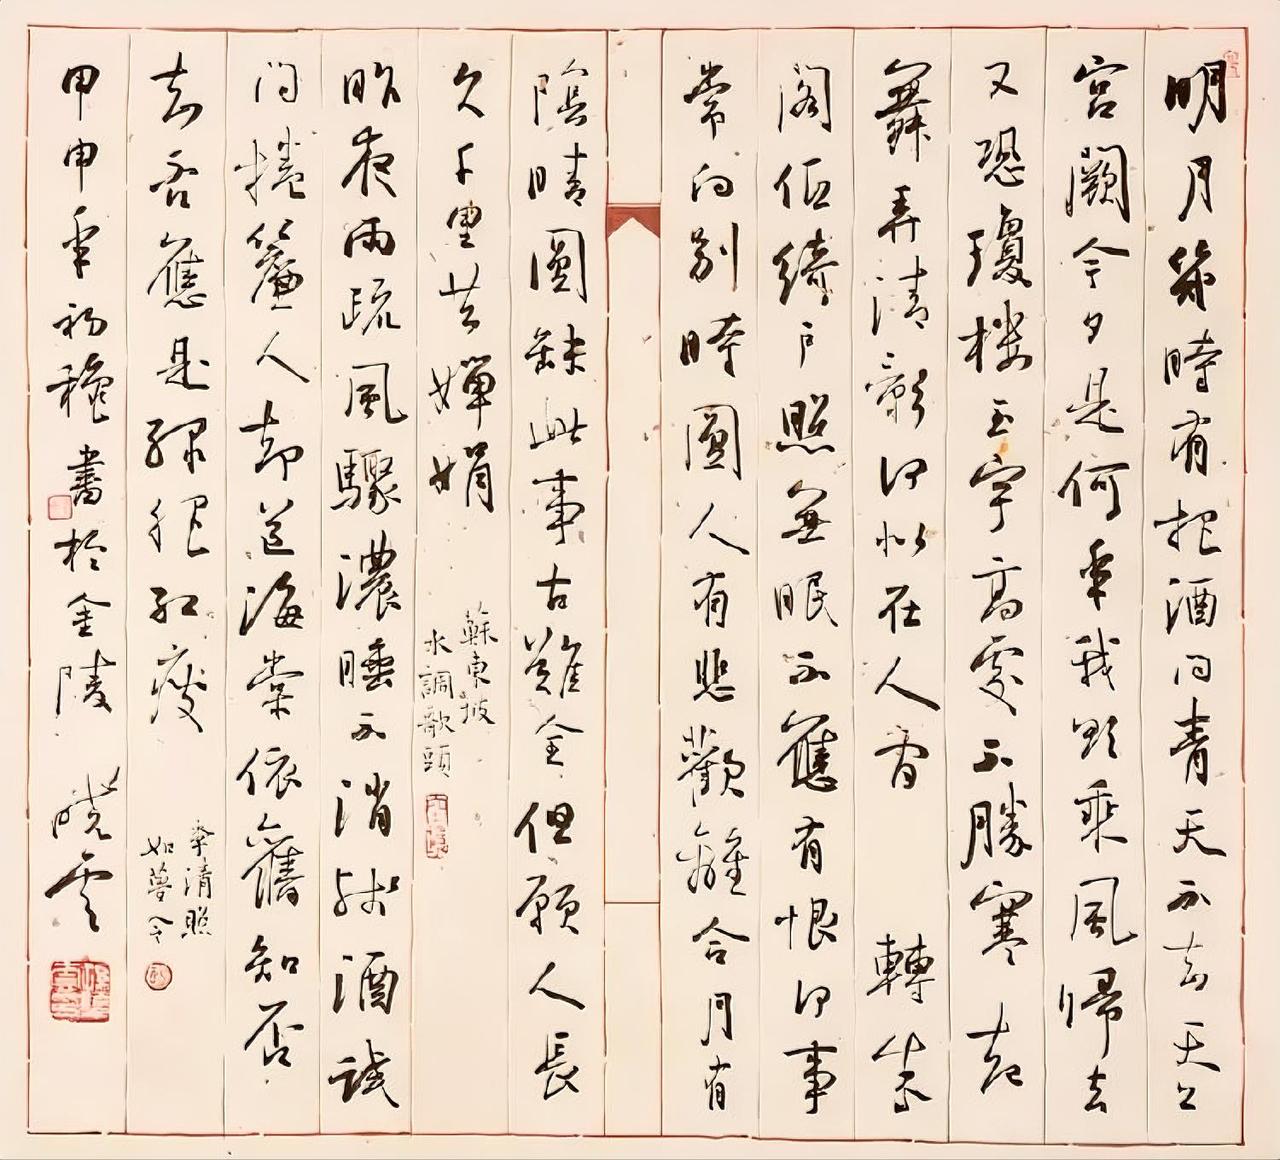 明月幾時有把酒问青天不知天上
宮闕今夕是何年我欲乘風歸去
又恐瓊楼玉宇高處不勝寒起
舞弄清影何似在人间轉朱
阁低绮户照無眠不應有恨何事
常向别時圓人有悲歡離合月有
陰晴圓缺此事古難全但願人長
久千里共嬋娟
蘇東坡
水調歌頭
昨夜雨疏風驟濃睡不消殘酒試
问捲簾人却道海棠依舊知否
知否應是綠肥红瘦
李清照
如夢令
甲申年初穐書於金陵晓雲